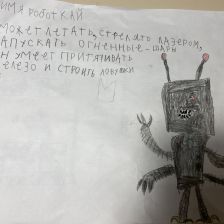 ИМЯ РОБОТ КАЙ
МОЖЕТ ЛЕТАТЬ, СТРЕЛЯТЬ ЛАЗЕРОМ,
АПУСКАТЬ ОГНЕННЫЕ-ШАРЫ
Н УМЕЕТ ПРИТЯГИВАТЬ
ЕЛЕЗО И СТРОИТЬ ЛОВУШКИ